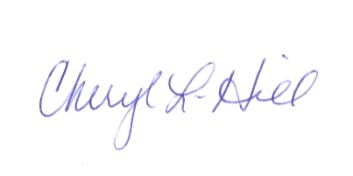 Cheryl L. Hill